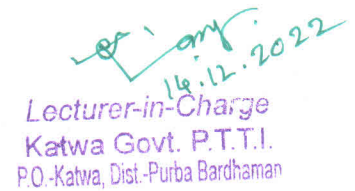 14.12.2022
Lecturer-in-Charge
Katwa Govt. P.T.T.I.
P.O.-Katwa, Dist.-Purba Bardhaman